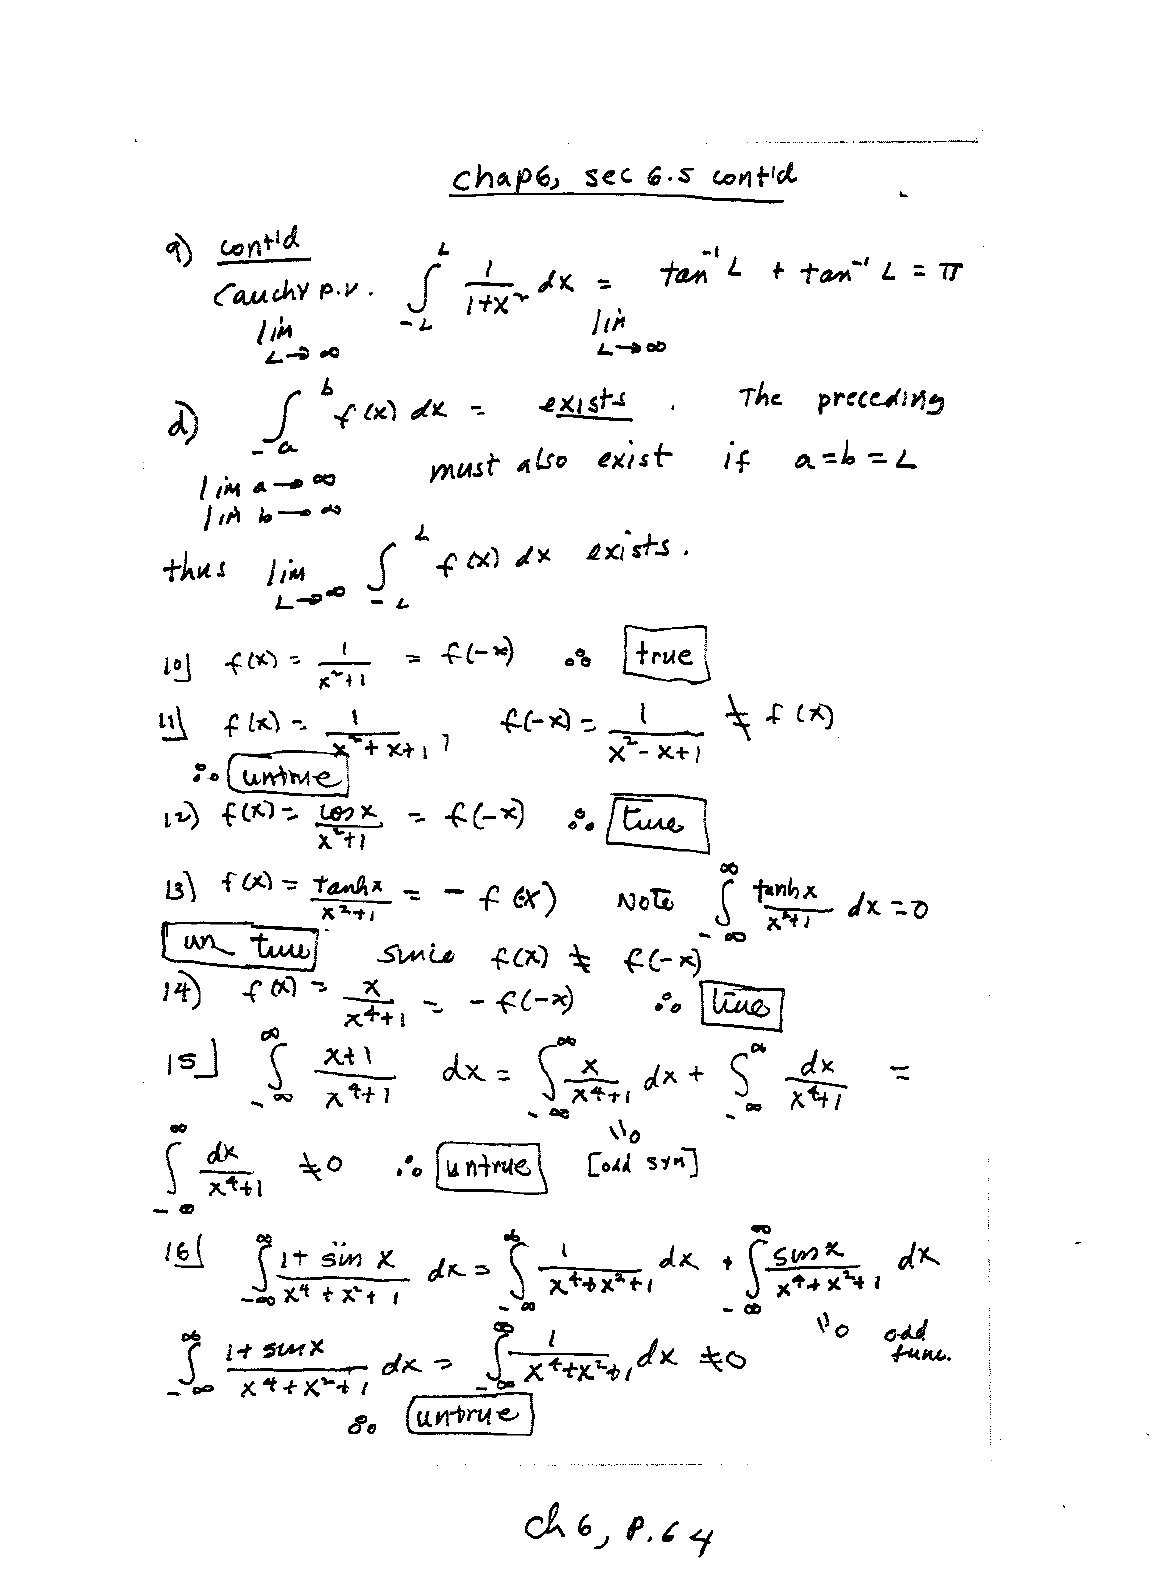 chap6, sec 6.5 cont'd
9) cont'd
Cauchy p.v. ∫_{-L}^{L} 1/(1+x²) dx = tan⁻¹ L + tan⁻¹ L = π
lim L→∞ lim L→∞
d) ∫_{-a}^{b} f(x) dx = exists. The preceding
lim a→∞ must also exist if a=b=L
lim b→∞
thus lim L→∞ ∫_{-L}^{L} f(x) dx exists.
10) f(x) = 1/(x²+1) = f(-x) ∴ true
11) f(x) = 1/(x²+x+1), f(-x) = 1/(x²-x+1) ≠ f(x)
∴ untrue
12) f(x) = cos x/(x²+1) = f(-x) ∴ true
13) f(x) = tanh x/(x²+1) = - f(-x) Note ∫_{-∞}^{∞} tanh x/(x²+1) dx = 0
un true since f(x) ≠ f(-x)
14) f(x) = x/(x⁴+1) = - f(-x) ∴ true
15) ∫_{-∞}^{∞} (x+1)/(x⁴+1) dx = ∫_{-∞}^{∞} x/(x⁴+1) dx + ∫_{-∞}^{∞} dx/(x⁴+1) =
"0
∫_{-∞}^{∞} dx/(x⁴+1) ≠ 0 ∴ untrue [odd sym]
16) ∫_{-∞}^{∞} (1+ sin x)/(x⁴+x²+1) dx = ∫_{-∞}^{∞} 1/(x⁴+x²+1) dx + ∫_{-∞}^{∞} sin x/(x⁴+x²+1) dx
"0 odd func.
∫_{-∞}^{∞} (1+ sin x)/(x⁴+x²+1) dx = ∫_{-∞}^{∞} 1/(x⁴+x²+1) dx ≠ 0
∴ untrue
ch 6, p. 64